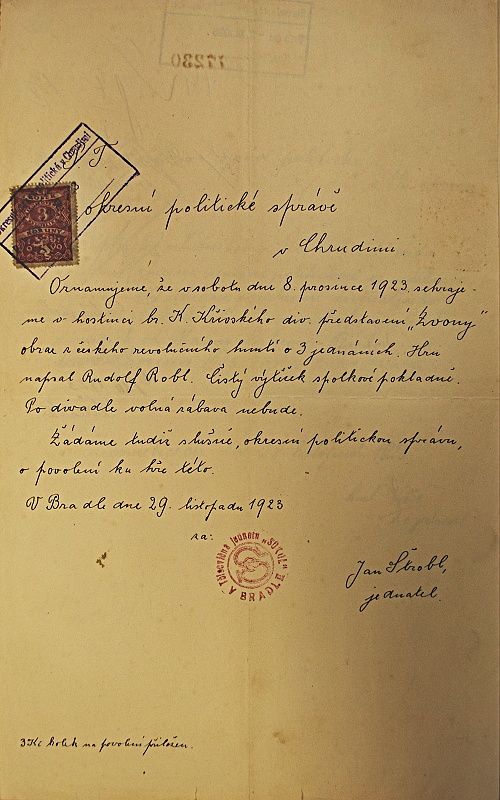 17230
T.
3
okresní politické správě
v Chrudimi.
Oznamujeme, že v sobotu dne 8. prosince 1923 sehraje-
me v hostinci br. K. Křivského div. představení „Zvony"
obraz z českého revolučního hnutí o 3 jednáních. Hru
napsal Rudolf Robl. Čistý výtěžek spolkové pokladně.
Po divadle volná zábava nebude.
Žádáme tudíž slušně, okresní politickou správu,
o povolení ku hře této.
V Bradle dne 29. listopadu 1923
za:
Tělocvičná jednota „SOKOL"
V BRADLE
Jan Škrobl,
jednatel.
3 Kč kolek na povolení přiložen.